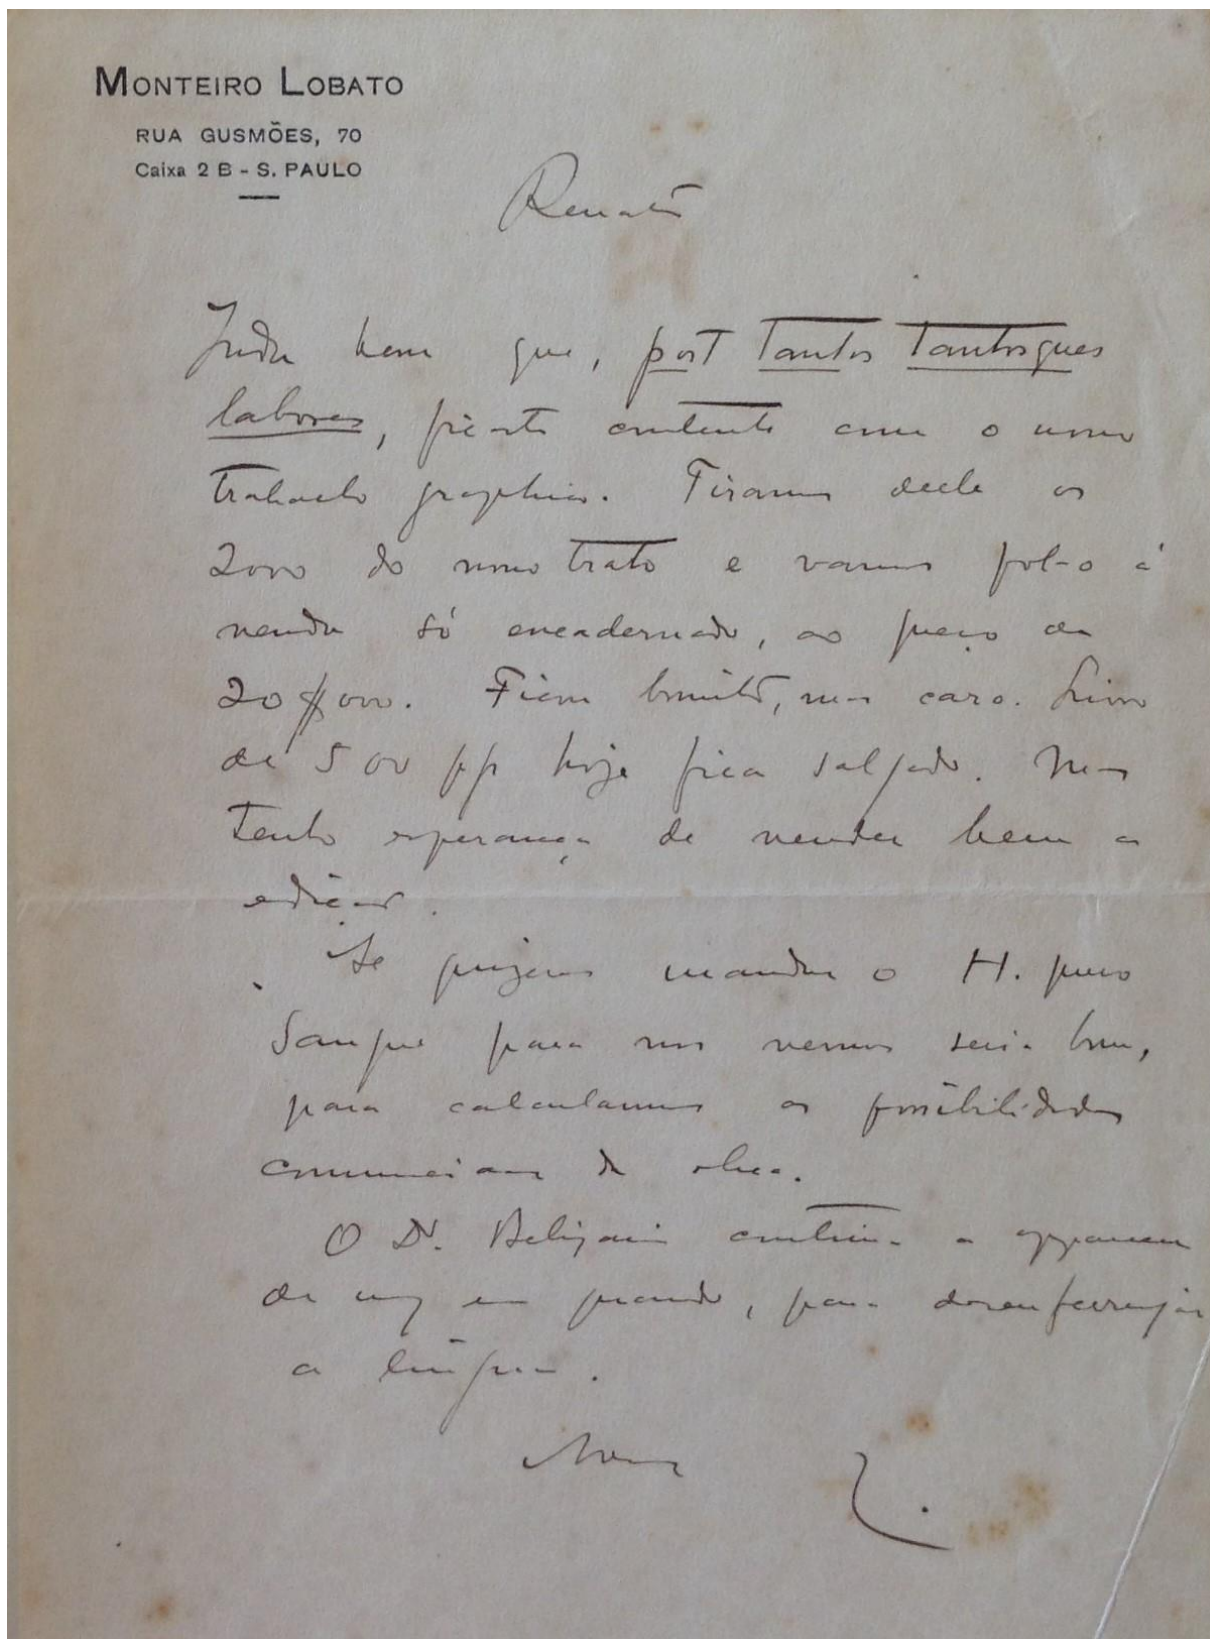 MONTEIRO LOBATO
RUA GUSMÕES, 70
Caixa 2 B - S. PAULO
Renato
Inda bem que, post tantos tantosques
labores, ficaste contente com o nosso
trabalho graphico. Tiramos delle os
2000 do nosso trato e vamos pol-o á
venda só encadernado, ao preço de
20$000. Ficou bonito, mas caro. Livro
de 500 pp hoje fica salgado. Mas
tenho esperança de vender bem a
edição.
Se quizeres mandar o H. puro
Sangue para nós vermos seria bom,
para calcularmos as possibilidades
commerciaes da obra.
O Dr. Belizario continua a apparecer
de vez em quando, para desenferrujar
a lingua.